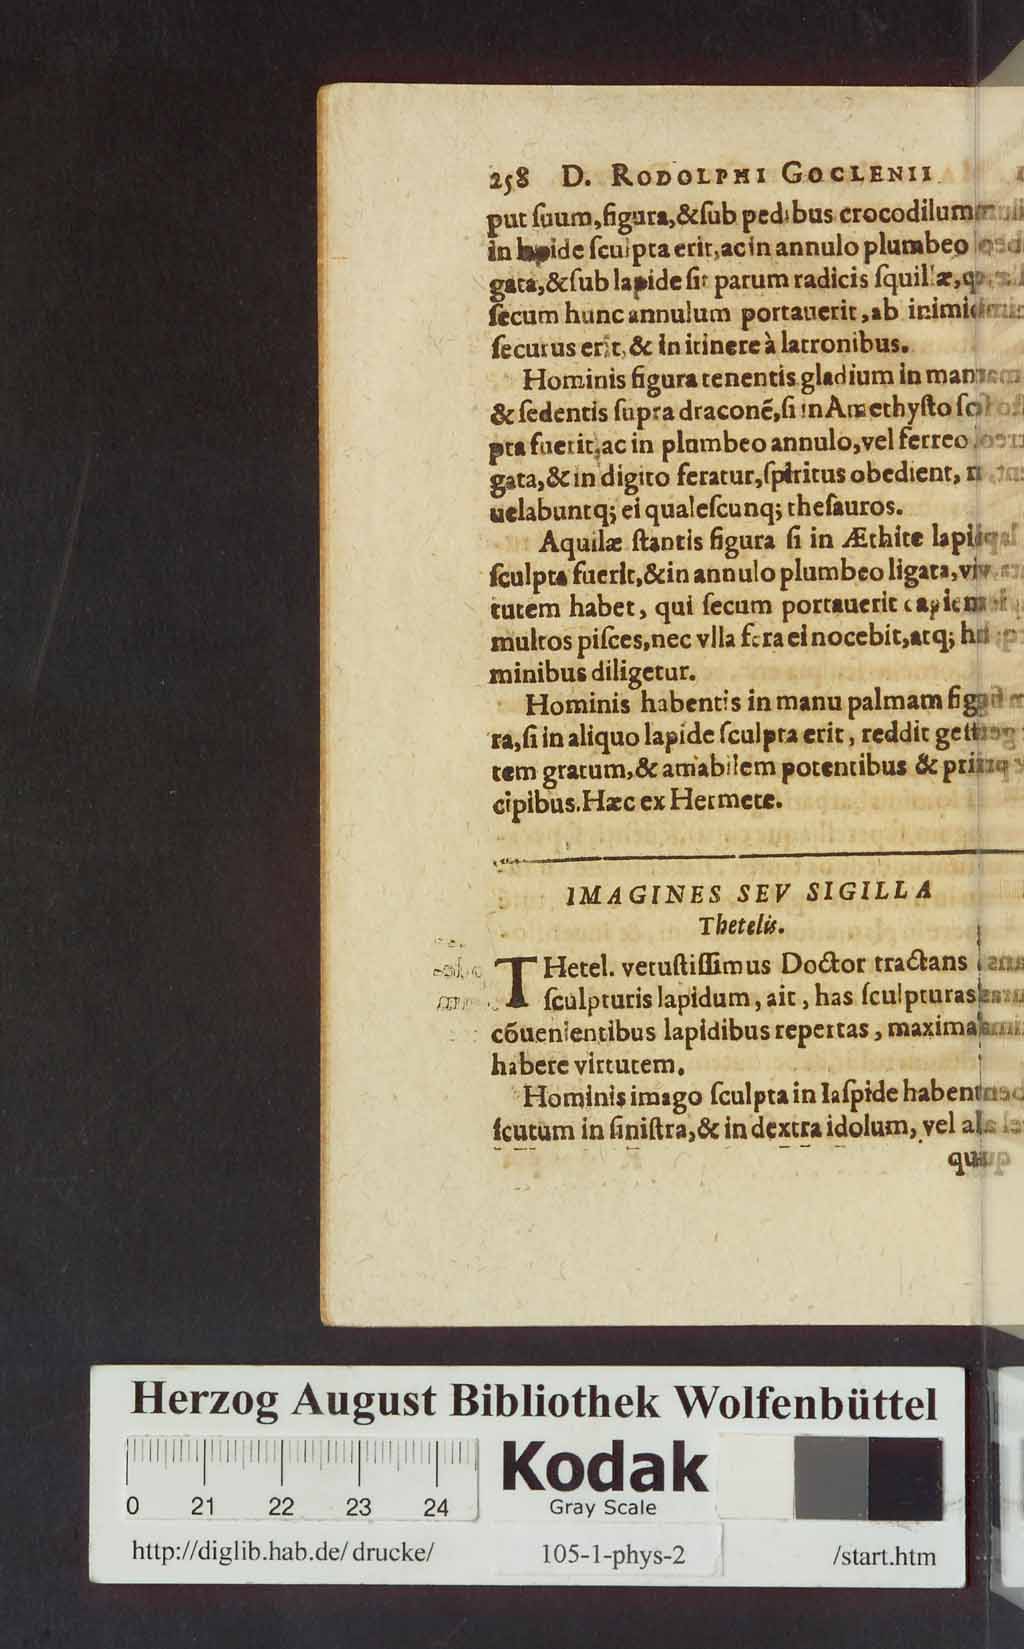 258 D. RODOLPHI GOCLENII
put ſuum, figura, & ſub pedibus crocodilum
in lapide ſculpta erit, ac in annulo plumbeo
gata, & ſub lapide ſit parum radicis ſquillæ,
ſecum hunc annulum portauerit, ab
ſecurus erit, & in itinere à latronibus.
Hominis figura tenentis gladium in
& ſedentis ſupra draconẽ, ſi in Amethyſto
pta fuerit, ac in plumbeo annulo, vel ferreo
gata, & in digito feratur, ſpiritus obedient,
uelabuntq; ei qualeſcunq; theſauros.
Aquilæ ſtantis figura ſi in Æthite
ſculpta fuerit, & in annulo plumbeo ligata,
tutem habet, qui ſecum portauerit
multos piſces, nec vlla fera ei nocebit, atq;
minibus diligetur.
Hominis habentis in manu palmam
ra, ſi in aliquo lapide ſculpta erit, reddit
tem gratum, & amabilem potentibus &
cipibus. Hæc ex Hermete.
IMAGINES SEV SIGILLA
Thetelis.
THetel. vetuſtiſſimus Doctor tractans
ſculpturis lapidum, ait, has ſculpturas
cõuenientibus lapidibus repertas, maxima
habere virtutem.
Hominis imago ſculpta in Iaſpide
ſcutum in ſiniſtra, & in dextra idolum, vel
Herzog August Bibliothek Wolfenbüttel
0 21 22 23 24
Kodak
Gray Scale
http://diglib.hab.de/drucke/ 105-1-phys-2 /start.htm